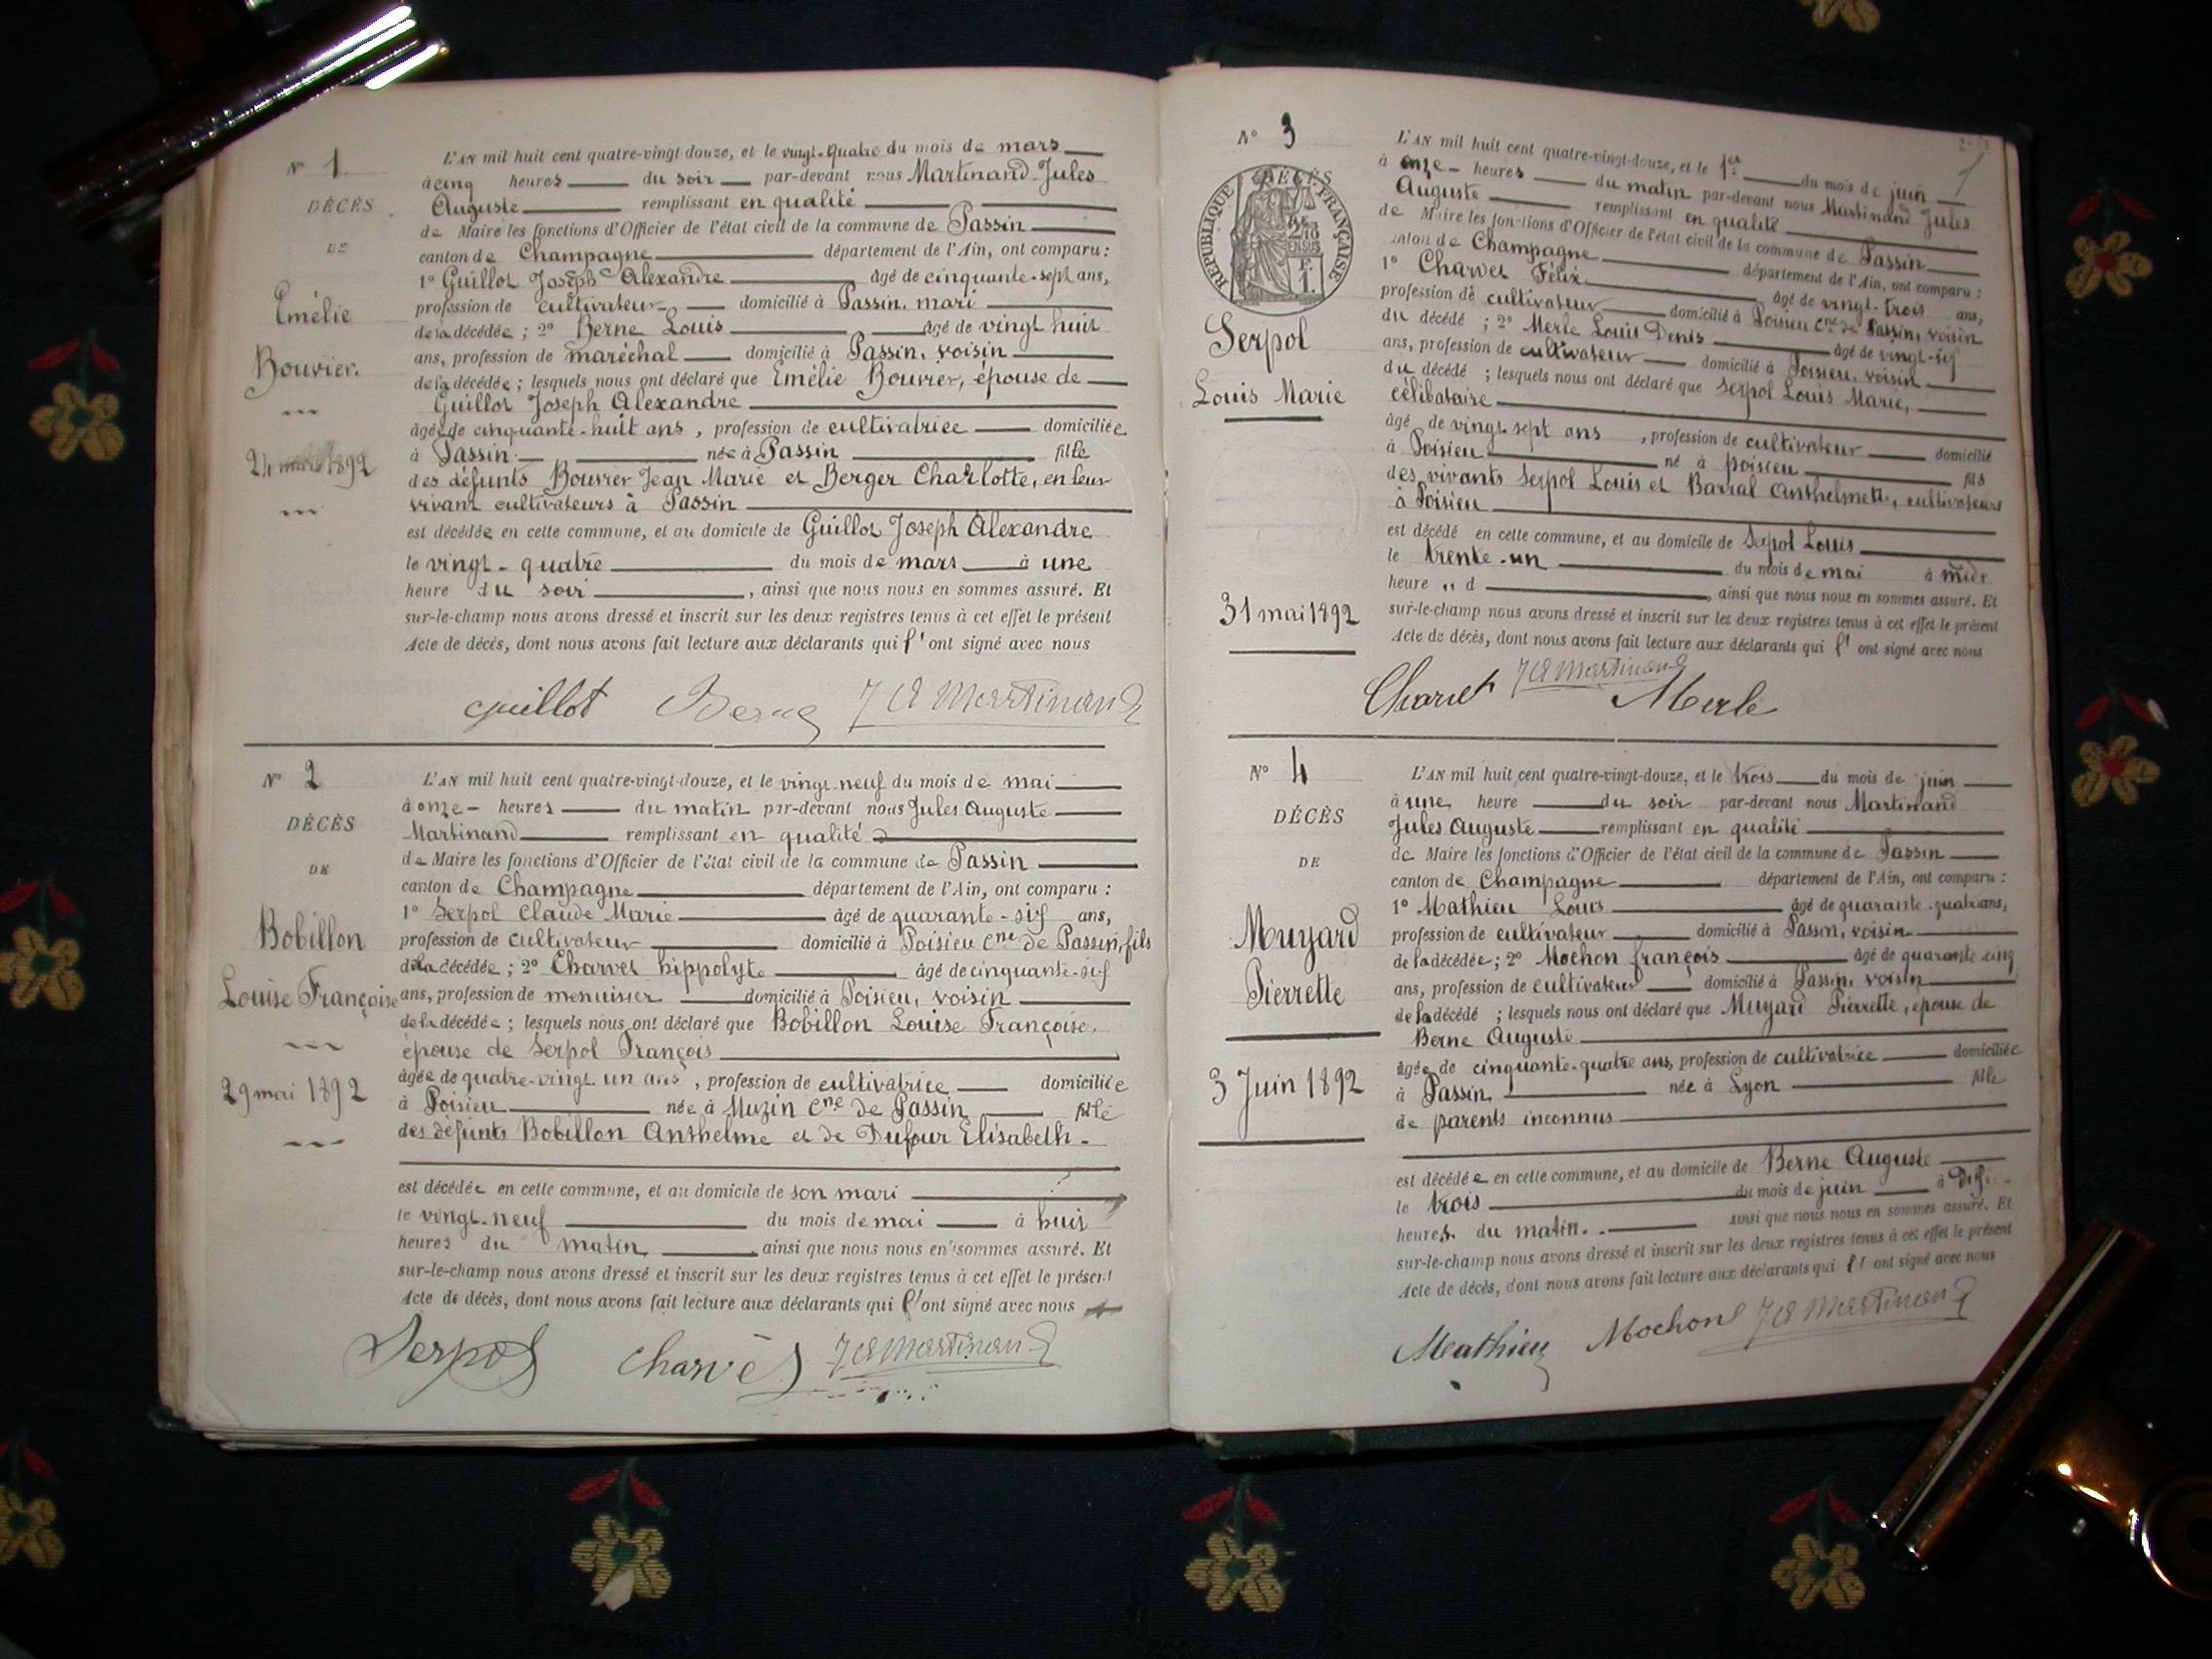 N° 1
DÉCÈS
DE
Emélie
Bouvier.
24 mars 1892
L'AN mil huit cent quatre-vingt douze, et le vingt-quatre du mois de mars
à cinq heures du soir par-devant nous Martinand Jules
Auguste remplissant en qualité
de Maire les fonctions d'Officier de l'état civil de la commune de Passin
canton de Champagne département de l'Ain, ont comparu :
1° Guillot Joseph Alexandre âgé de cinquante-sept ans,
profession de cultivateur domicilié à Passin, mari
de la décédée ; 2° Berne Louis âgé de vingt huit
ans, profession de maréchal domicilié à Passin, voisin
de la décédée ; lesquels nous ont déclaré que Emélie Bouvier, épouse de
Guillot Joseph Alexandre
âgée de cinquante-huit ans, profession de cultivatrice domiciliée
à Passin née à Passin fille
des défunts Bouvier Jean Marie et Berger Charlotte, en leur
vivant cultivateurs à Passin
est décédée en cette commune, et au domicile de Guillot Joseph Alexandre
le vingt-quatre du mois de mars à une
heure du soir, ainsi que nous nous en sommes assuré. Et
sur-le-champ nous avons dressé et inscrit sur les deux registres tenus à cet effet le présent
Acte de décès, dont nous avons fait lecture aux déclarants qui l'ont signé avec nous
guillot Berne J A Martinand
N° 2
DÉCÈS
DE
Bobillon
Louise Françoise
29 mai 1892
L'AN mil huit cent quatre-vingt-douze, et le vingt neuf du mois de mai
à onze heures du matin par-devant nous Jules Auguste
Martinand remplissant en qualité
de Maire les fonctions d'Officier de l'état civil de la commune de Passin
canton de Champagne département de l'Ain, ont comparu :
1° Serpol Claude Marie âgé de quarante-six ans,
profession de cultivateur domicilié à Poisieu cne de Passin, fils
de la décédée ; 2° Charvet hippolyte âgé de cinquante-six
ans, profession de menuisier domicilié à Poisieu, voisin
de la décédée ; lesquels nous ont déclaré que Bobillon Louise Françoise,
épouse de Serpol François
âgée de quatre-vingt un ans, profession de cultivatrice domiciliée
à Poisieu née à Muzin cne de Passin fille
des défunts Bobillon Anthelme et de Dufour Elisabeth.
est décédée en cette commune, et au domicile de son mari
le vingt-neuf du mois de mai à huit
heures du matin, ainsi que nous nous en sommes assuré. Et
sur-le-champ nous avons dressé et inscrit sur les deux registres tenus à cet effet le présent
Acte de décès, dont nous avons fait lecture aux déclarants qui l'ont signé avec nous
Serpol Charvet J A Martinand
N° 3
DÉCÈS
RÉPUBLIQUE FRANÇAISE
Serpol
Louis Marie
31 mai 1892
L'AN mil huit cent quatre-vingt-douze, et le 1er du mois de juin
à onze heures du matin par-devant nous Martinand Jules
Auguste remplissant en qualité
de Maire les fonctions d'Officier de l'état civil de la commune de Passin
canton de Champagne département de l'Ain, ont comparu :
1° Charvet Félix âgé de vingt-trois ans,
profession de cultivateur domicilié à Poisieu cne de Passin, voisin
du décédé ; 2° Merle Louis Denis âgé de vingt-six
ans, profession de cultivateur domicilié à Poisieu, voisin
du décédé ; lesquels nous ont déclaré que Serpol Louis Marie,
célibataire
âgé de vingt sept ans, profession de cultivateur domicilié
à Poisieu né à poisieu fils
des vivants Serpol Louis et Barral Anthelmette, cultivateurs
à Poisieu
est décédé en cette commune, et au domicile de Serpol Louis
le trente-un du mois de mai à midi
heure " d , ainsi que nous nous en sommes assuré. Et
sur-le-champ nous avons dressé et inscrit sur les deux registres tenus à cet effet le présent
Acte de décès, dont nous avons fait lecture aux déclarants qui l'ont signé avec nous
Charvet J A Martinand Merle
N° 4
DÉCÈS
DE
Muyard
Pierrette
3 Juin 1892
L'AN mil huit cent quatre-vingt-douze, et le trois du mois de juin
à une heure du soir par-devant nous Martinand
Jules Auguste remplissant en qualité
de Maire les fonctions d'Officier de l'état civil de la commune de Passin
canton de Champagne département de l'Ain, ont comparu :
1° Mathieu Louis âgé de quarante-quatre ans,
profession de cultivateur domicilié à Passin, voisin
de la décédée ; 2° Mochon françois âgé de quarante cinq
ans, profession de cultivateur domicilié à Passin, voisin
de la décédé ; lesquels nous ont déclaré que Muyard Pierrette, épouse de
Berne Auguste
âgée de cinquante-quatre ans, profession de cultivatrice domiciliée
à Passin née à Lyon fille
de parents inconnus
est décédée en cette commune, et au domicile de Berne Auguste
le trois du mois de juin à dix
heures du matin. ainsi que nous nous en sommes assuré. Et
sur-le-champ nous avons dressé et inscrit sur les deux registres tenus à cet effet le présent
Acte de décès, dont nous avons fait lecture aux déclarants qui l'ont signé avec nous
Mathieu Mochon J A Martinand